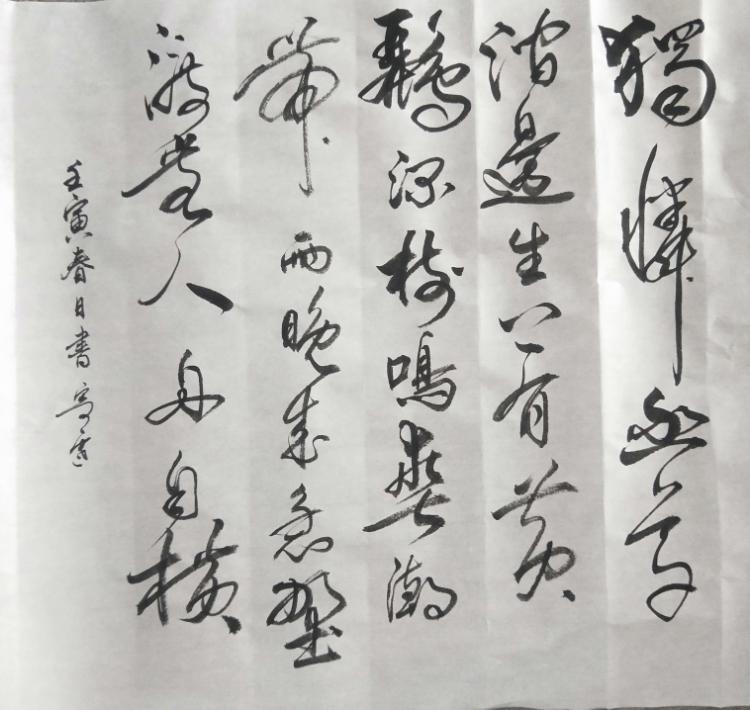 獨憐幽草
澗邊生上有黄
鸝深樹鳴春潮
帶雨晚來急野
渡無人舟自橫
壬寅春日書